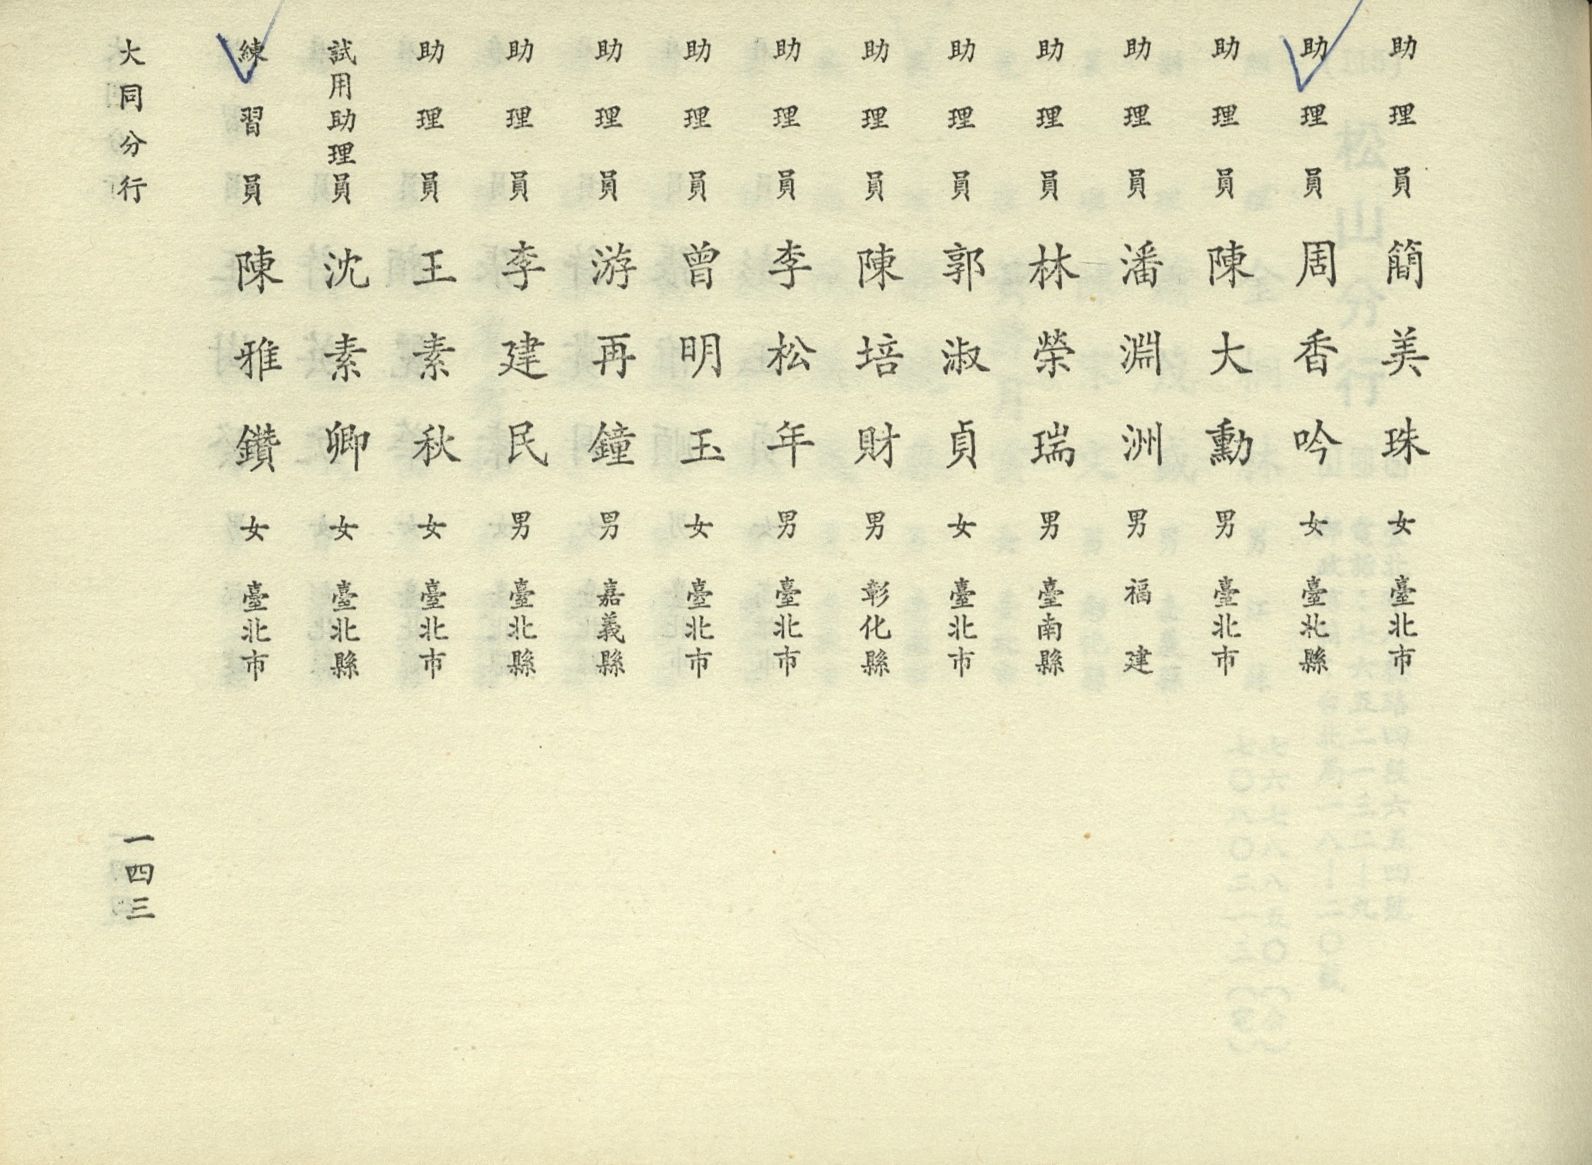 助理員 簡美珠 女 臺北市
助理員 周香吟 女 臺北縣
助理員 陳大勳 男 臺北市
助理員 潘淵洲 男 福建
助理員 林榮瑞 男 臺南縣
助理員 郭淑貞 女 臺北市
助理員 陳培財 男 彰化縣
助理員 李松年 男 臺北市
助理員 曾明玉 女 臺北市
助理員 游再鐘 男 嘉義縣
助理員 李建民 男 臺北縣
助理員 王素秋 女 臺北市
試用助理員 沈素卿 女 臺北縣
練習員 陳雅鑽 女 臺北市
大同分行 一四三